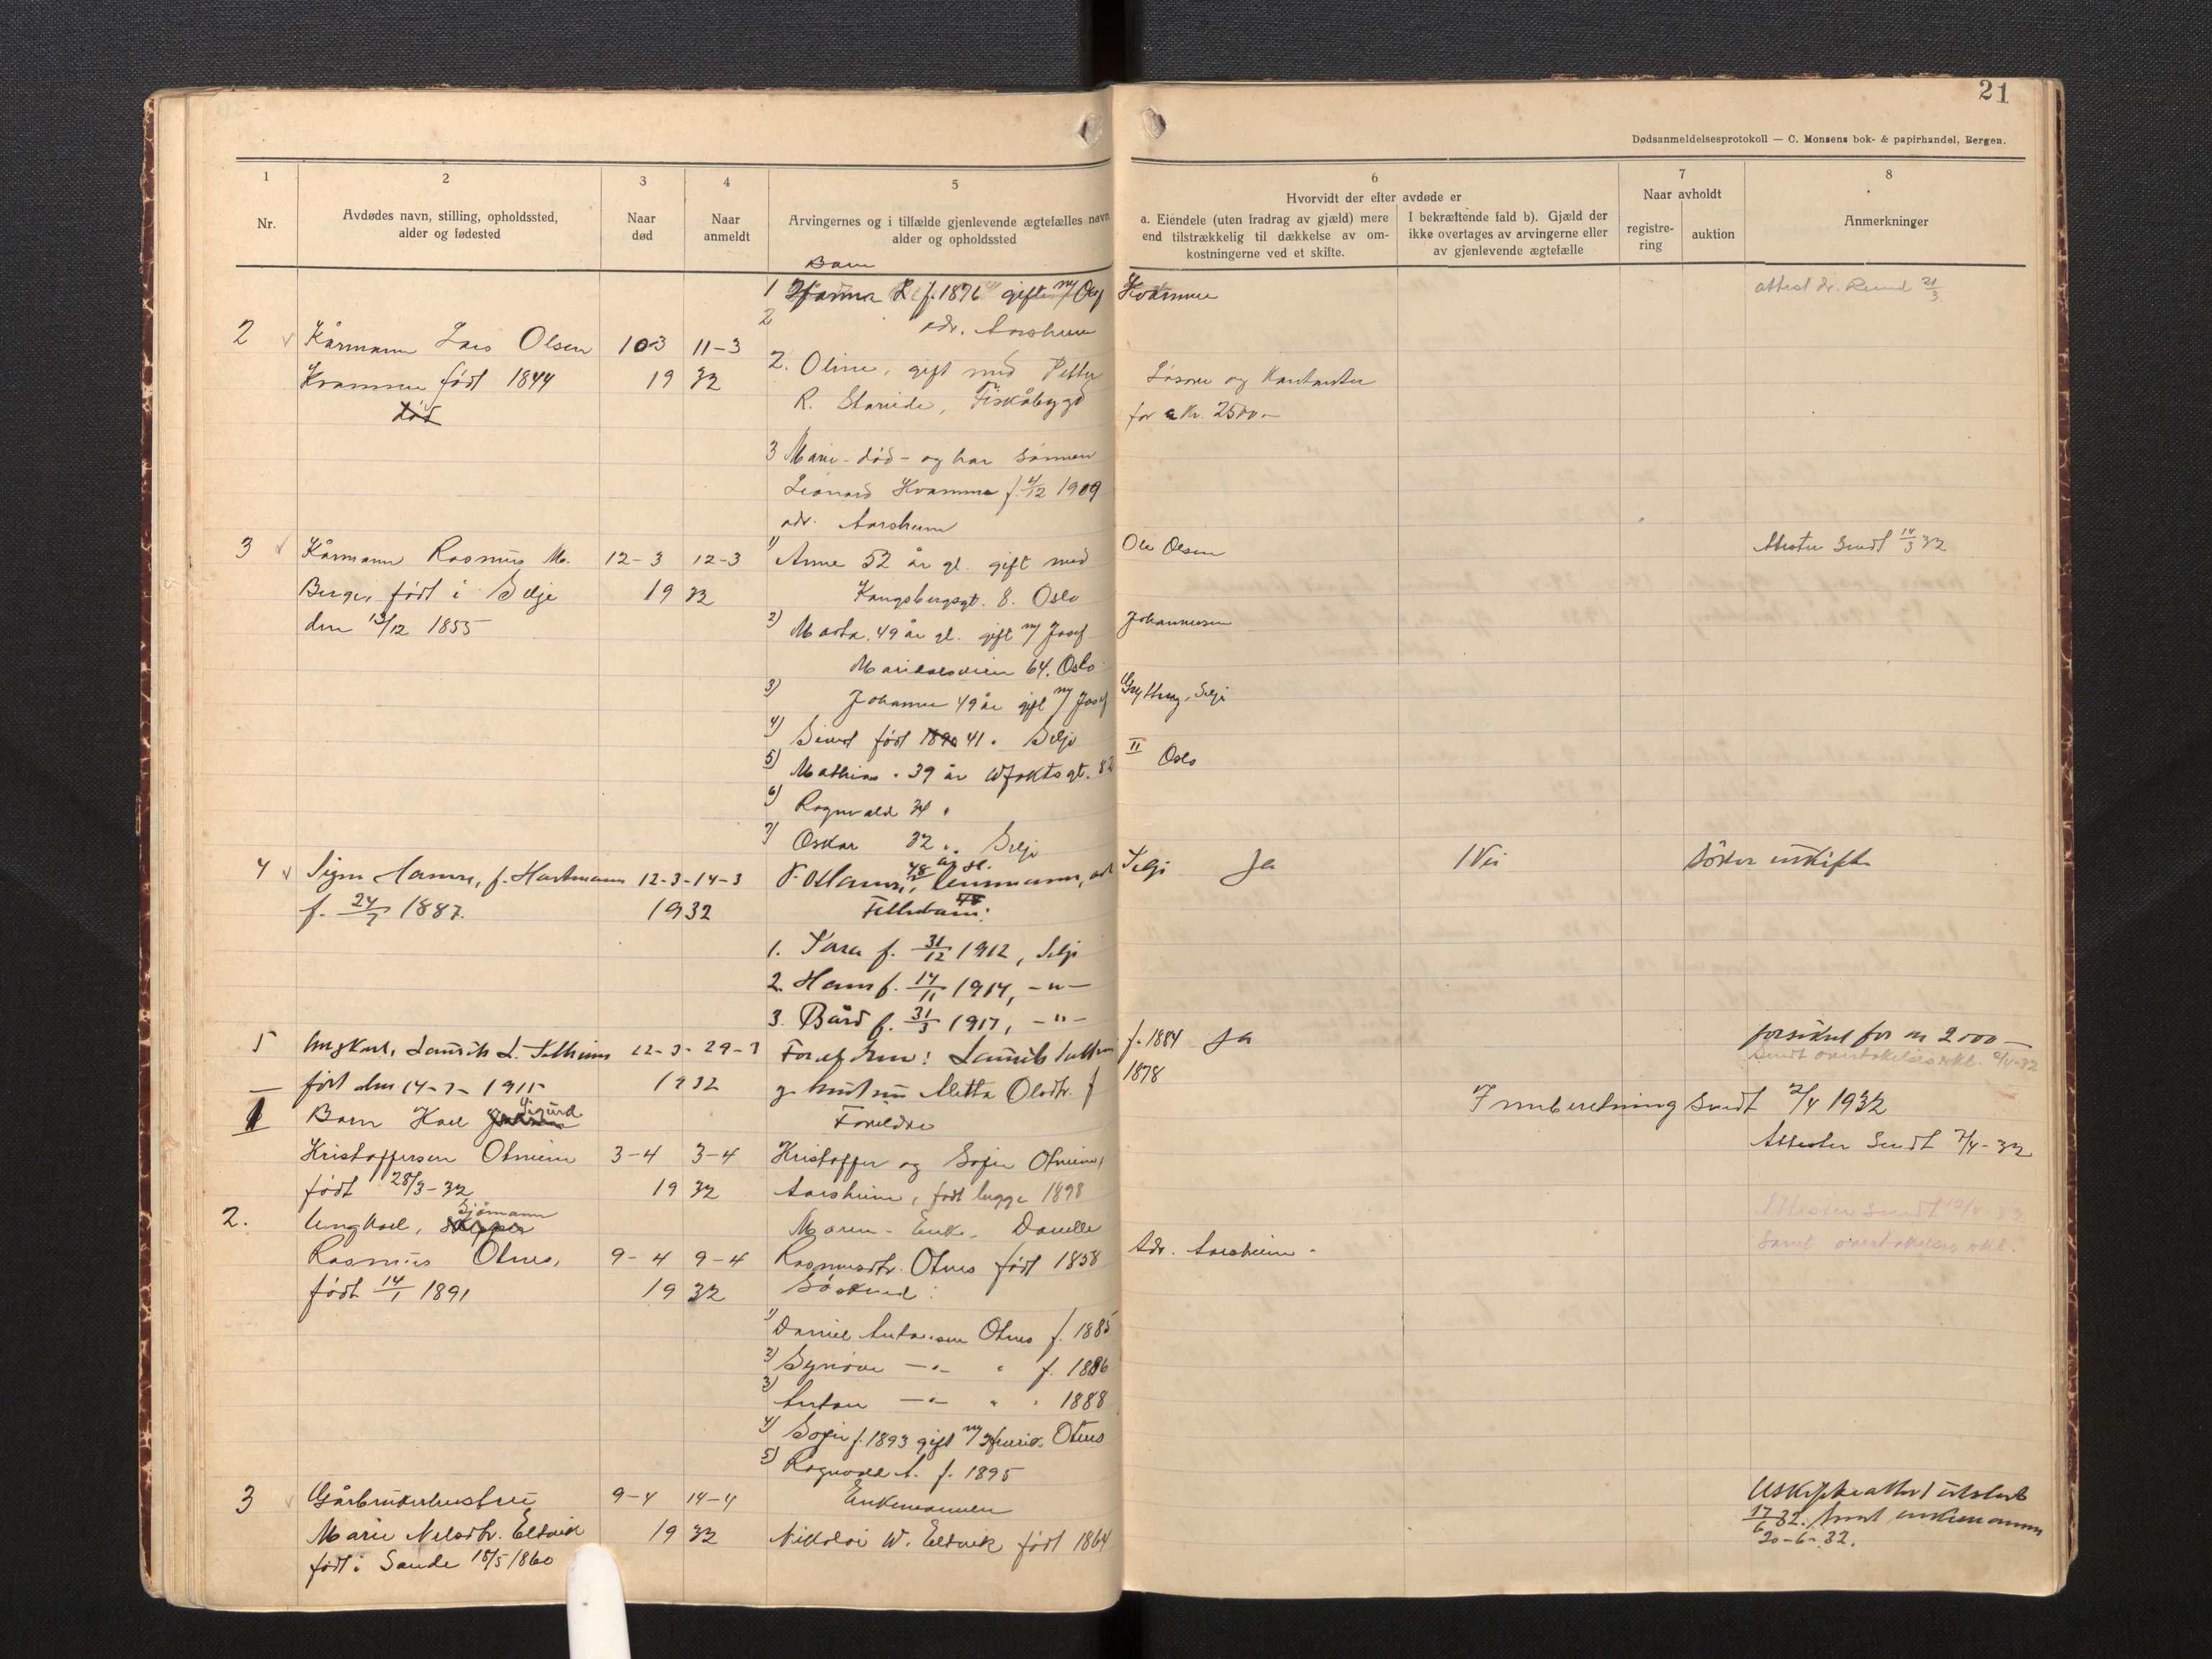 21
Dødsanmeldelsesprotokoll — C. Monsens bok- & papirhandel, Bergen.
1
Nr.
2
Avdødes navn, stilling, opholdssted,
alder og fødested
3
Naar
død
4
Naar
anmeldt
5
Arvingernes og i tilfælde gjenlevende ægtefælles navn
alder og opholdssted
6
Hvorvidt der efter avdøde er
a. Eiendele (uten fradrag av gjæld) mere
end tilstrækkelig til dækkelse av om-
kostningerne ved et skifte.
I bekræftende fald b). Gjæld der
ikke overtages av arvingerne eller
av gjenlevende ægtefælle
7
Naar avholdt
registre-
ring
auktion
8
Anmerkninger
Barn
1 Hanna L f. 1876 gift m/ Ole Hvamme
2 adr. Aarsheim
2 Kårmann Lars Olsen 10-3 11-3
Kvamme født 1844 19 32
død
2. Oline, gift med Petter
R. Starride, Fiskåbygd
Løsøre og Kontanter
for ca Kr. 2500.-
3 Marie - død - og har sønnen
Leonard Hvamme f. 4/12 1909
adr. Aarsheim
3 Kårmann Rasmus M. 12-3 12-3 1) Anne 52 år gl. gift med Ole Olsen
Attester Sendt 14/3 32
Berge, født i Selje 19 32 Kongsbergsgt. 8. Oslo
den 13/12 1855 2) Marta. 49 år gl. gift m/ Josef Johannesen
Maridalsveien 64. Oslo
3) Johanne 49 år gift m/ Josef
4) Sivert født 1890 41 " Selje
5) Mathias " 39 år Wfoktsgt. 82 II Oslo
6) Ragnvald 34 "
7) Oskar 32 " Selje
4 Signe Hamre, f. Hartmann 12-3-14-3 Selje Ja Nei Söker uskifte
f. 24/7 1887. 1932 Fellesbarn:
1. Kara f. 31/12 1912, Selje
2. Hans f. 14/11 1914, -"-
3. Bård f. 31/3 1917, -"-
5 Ungkarl, Lauritz L. 22-3- 29-3 f. 1884 Ja forsikret for kr 2000 —
født den 14-3- 1915 1932 Metta Olsdtr. f 1878
Innberetning sendt 2/4 1932
1 Barn Karl Sigurd Foreldre
Kristoffersen Otneim 3-4 3-4 Kristoffer og Sofie Otneim,
Attester Sendt 7/4-32
født 28/3-32 19 32 Aarsheim, født begge 1898
2. Ungkarl, Skipper Sjömann Maren - Enke - Danielle
Rasmus Otnes, 9-4 9-4 Rasmusdtr. Otnes født 1858 Adr. Aarsheim -
født 14/1 1891 19 32 Søskend:
1) Daniel Antonsen Otnes f. 1885
2) Synöve -"- " f. 1886
3) Anton -"- " " 1888
4) Sofie f. 1893 gift m/ Otnes
5) Ragnvald A. f. 1895
3 Gårbrukerhustru 9-4 14-4 Enkemannen
Marie Nelsdtr. Eltvik 19 32 Nikolai W. Eltvik født 1864
født i Sande 18/5 1860
Uskifteattest utstedt
17/6 32. Sendt enkemannen
20-6-32.